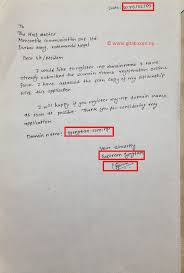 Date:
© www.gitab.com.np
To
The Host Master
Mercantile Communication Pvt. Ltd
Durbar Marg, Kathmandu Nepal
Dear Sir/Madam
I would like to register .np domain name & have
already submitted the domain name registration online
form. I have attached the scan copy of my citizenship
with this application.
I will happy if you register my .np domain name
as soon as possible. Thank you for considering my
application.
Domain name:
Your Sincerely